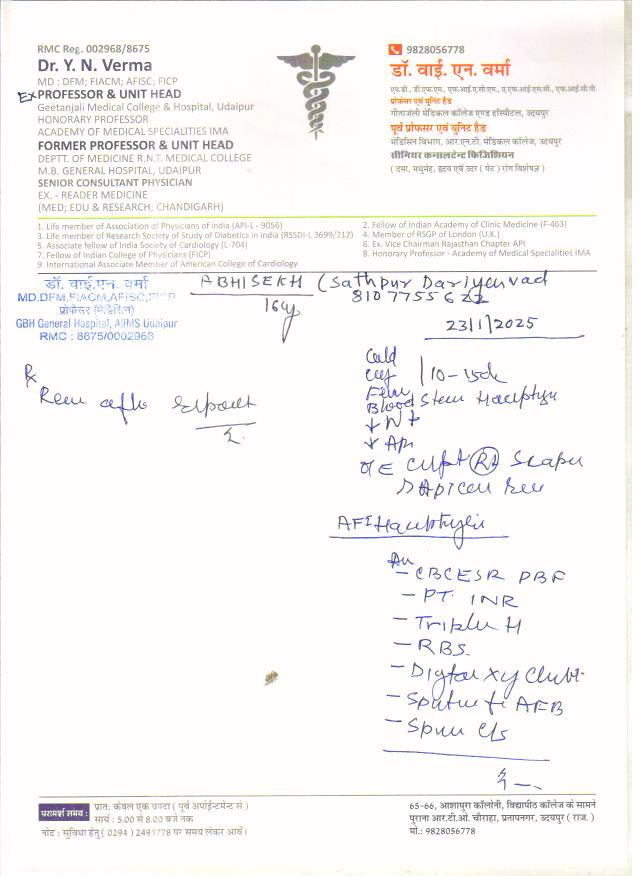 RMC Reg. 002968/8675
Dr. Y. N. Verma
MD : DFM; FIACM; AFISC; FICP
Ex PROFESSOR & UNIT HEAD
Geetanjali Medical College & Hospital, Udaipur
HONORARY PROFESSOR
ACADEMY OF MEDICAL SPECIALITIES IMA
FORMER PROFESSOR & UNIT HEAD
DEPTT. OF MEDICINE R.N.T. MEDICAL COLLEGE
M.B. GENERAL HOSPITAL, UDAIPUR
SENIOR CONSULTANT PHYSICIAN
EX. - READER MEDICINE
(MED; EDU & RESEARCH; CHANDIGARH)
9828056778
डॉ. वाई. एन. वर्मा
एम.डी., डी.एफ.एम., एफ.आई.ए.सी.एम., ए.एफ.आई.एस.सी., एफ.आई.सी.पी.
प्रोफेसर एवं युनिट हैड
गीतांजली मेडिकल कॉलेज एण्ड हॉस्पिटल, उदयपुर
पूर्व प्रोफेसर एवं युनिट हैड
मेडिसिन विभाग, आर.एन.टी. मेडिकल कॉलेज, उदयपुर
सीनियर कन्सलटेन्ट फिजिशियन
( दमा, मधुमेह, हृदय एवं उदर ( पेट ) रोग विशेषज्ञ )
1. Life member of Association of Physicians of india (API-L - 9056)
3. Life member of Research Society of Study of Diabetics in india (RSSDI-L 3699/212)
5. Associate fellow of India Society of Cardiology (L-704)
7. Fellow of Indian College of Physicians (FICP)
9. International Associate Member of American College of Cardiology
2. Fellow of Indian Academy of Clinic Medicine (F-463)
4. Member of RSGP of London (U.K.)
6. Ex. Vice Chairman Rajasthan Chapter API
8. Honorary Professor - Academy of Medical Specialities IMA
डॉ. वाई. एन. वर्मा
MD.DFM,FIACM,AFISC,FICP
प्रोफेसर (मेडिसिन)
GBH General Hospital, AIIMS Udaipur
RMC : 8675/0002968
ABHISEKH (Sathpur Dariyenvad
16y
23/1/2025
Rx
Cold
10-15d
Blood Stem
R
AFI
- CBC ESR PBF
- PT INR
- Triple H
- RBS.
- Digital Xy Chest
- Sputum f AFB
- Sputum C/s
परामर्श समय :
प्रातः केवल एक घण्टा ( पूर्व अपोईन्टमेन्ट से )
सायं : 5.00 से 8.00 बजे तक
नोट : सुविधा हेतु ( 0294 ) 2491778 पर समय लेकर आवें।
65-66, आशापुरा कॉलोनी, विद्यापीठ कॉलेज के सामने
पुराना आर.टी.ओ. चौराहा, प्रतापनगर, उदयपुर ( राज. )
मो.: 9828056778